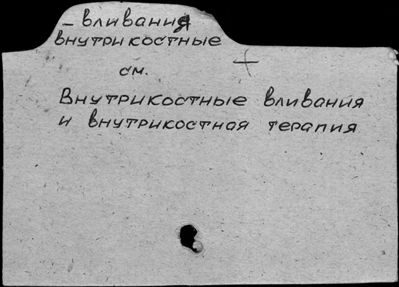 – вливания
внутрикостные
см.
Внутрикостные вливания
и внутрикостная терапия